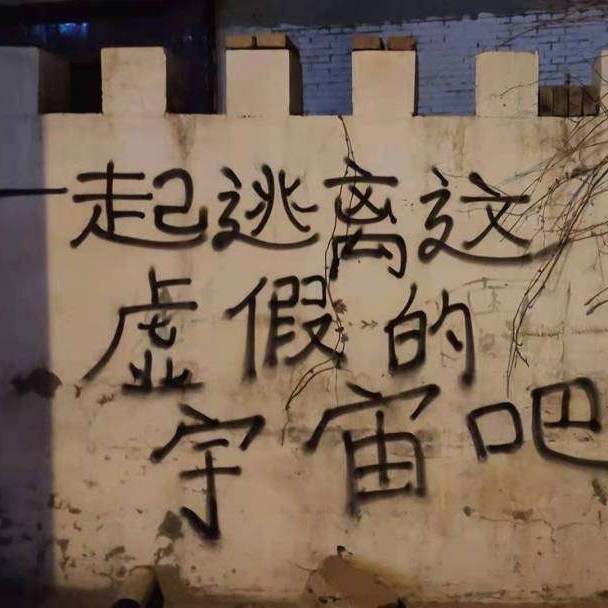 一起逃离这
虚假的
宇宙吧